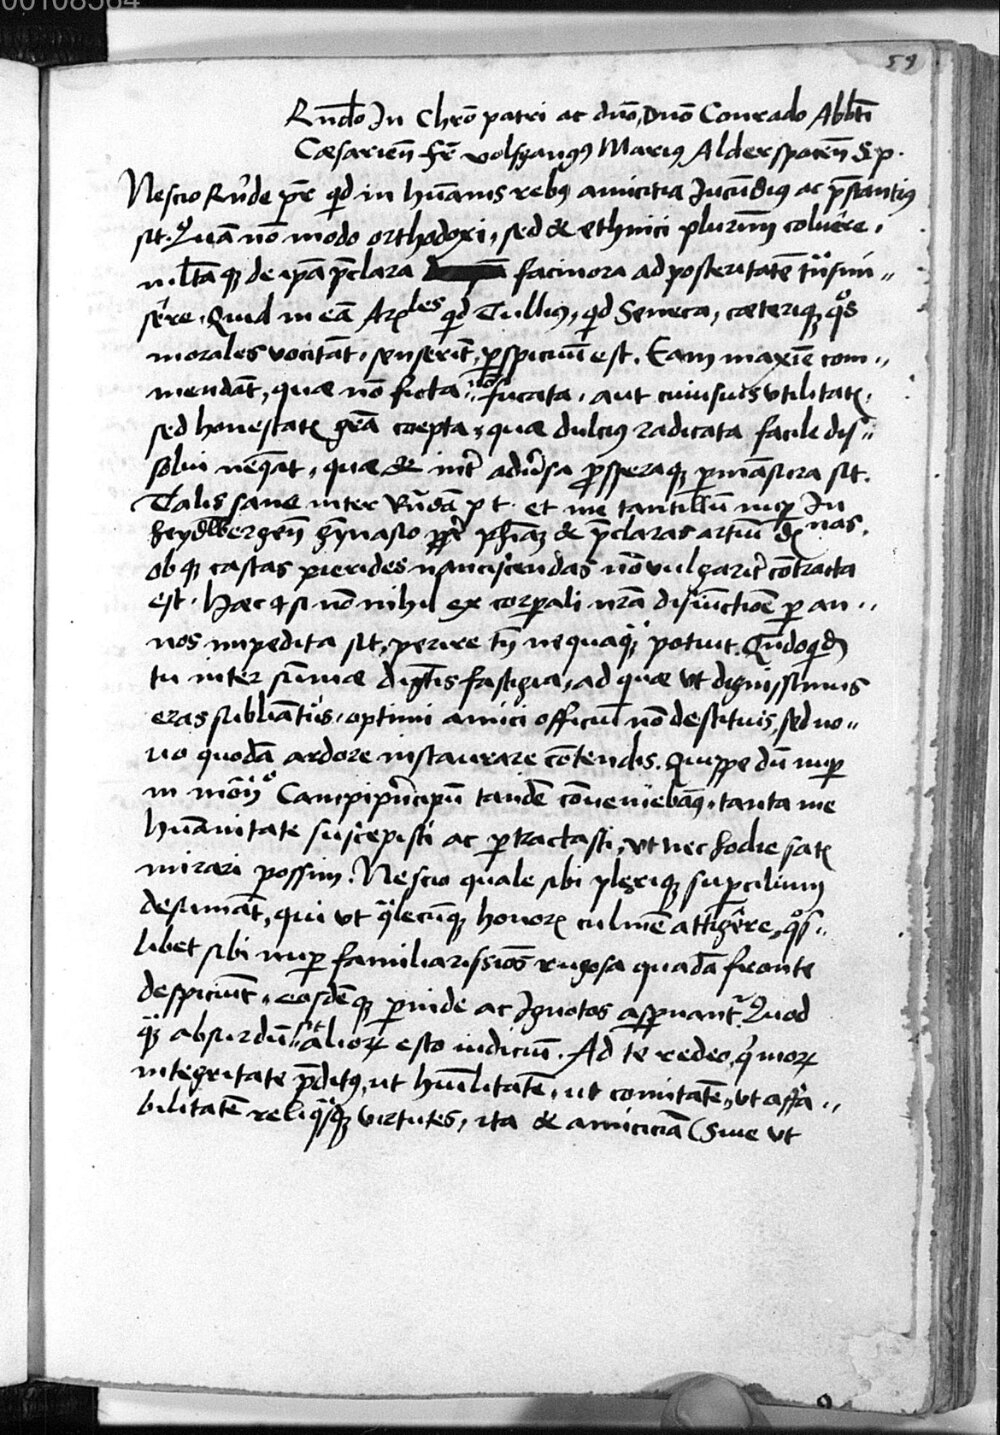 00108564
58
Rndo In Chro patri ac dno, Dno Conrado Abbti
Cæsarien fr volfgangus Marius Alderspacen S. p.
Nescio Rnde pr qd in humanis rebus amicitia Iucundius ac prstantius
sit. Quam no modo orthodoxi, sed & ethnici plurimum coluere.
multa que de ipa prclara facinora ad posteritate tnsmi„
sere. Quid in ea Arles qd Tullius, qd Seneca, cæterique, quos
morales vocitat, senserit, perspicuu est. Eam maxie com„
mendat, quæ no ficta no fucata, aut cuiusuis vtilitatis,
sed honestatis gra coepta, quæ dulcius radicata facile dis„
solui neqat, quæ & inter aduersa prosperaque permasura sit.
Talis sane inter Rudam p t. et me tantillu nuper In
heydelbergen gymnasio propter phiam & prclaras artium
nas.
ob que castas pierides nanciscendas no vulgariter contracta
est. Hæc etsi non nihil ex corporali nra disiunctioe per an„
nos impedita sit, perire tn nequaqua potuit. Quadoquidem
tu inter summæ dignitatis fastigia, ad quæ vt dignissimus
eras sublimatus, optimi amici officiu no destituis, sed no„
uo quoda ardore instaurare contendis. Quippe du nuper
in Campiprincipum tande conueniebaque, tanta me
humanitate suscepisti ac pertractasti, vt nec hodie satis
mirari possim. Nescio quale sibi plerique supercilium
desumat, qui vt qualecunque honoris culmen attigere, quos„
libet sibi nuper familiarissimos rugosa quadam fronte
despiciunt, eosdemque perinde ac Ignotos aspernantur. Quod
qua absurdu sit alioru esto iudiciu. Ad te redeo, qui moru
integritate prditus, ut humilitate, ut comitate, vt affa„
bilitate reliquasque virtutes, ita & amiciciam (siue vt